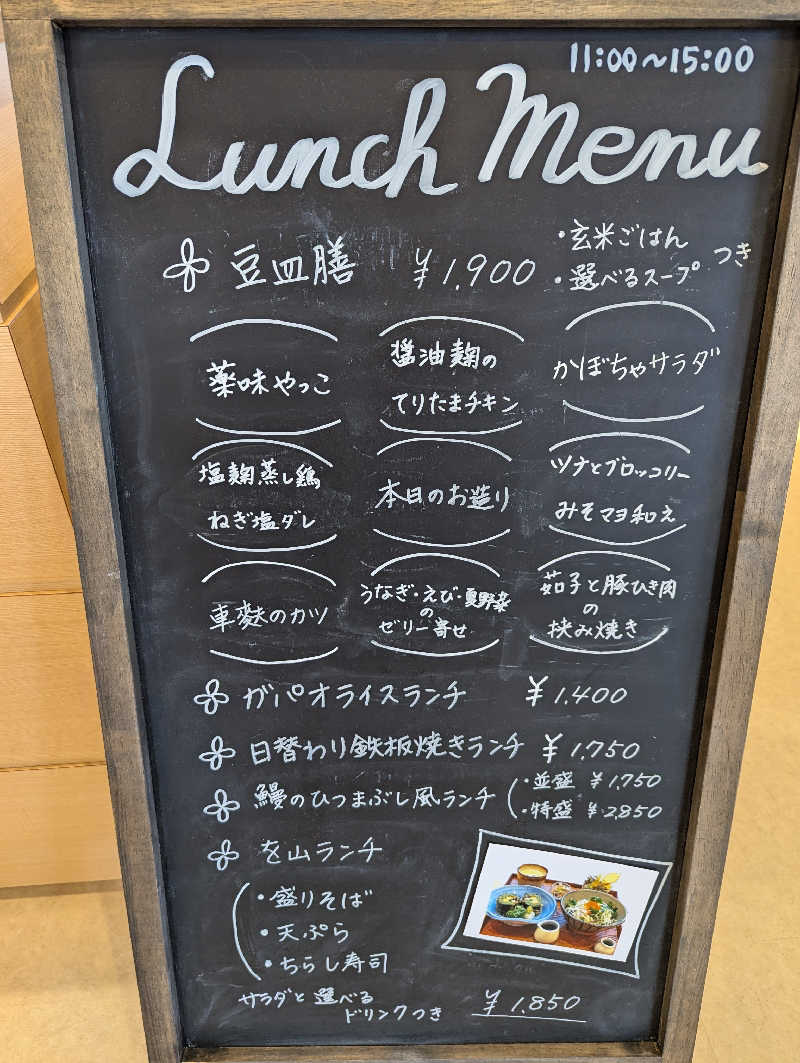 11:00~15:00
Lunch Menu
豆皿膳 ¥1.900
・玄米ごはん
・選べるスープ
つき
薬味やっこ
醤油麹の
てりたまチキン
かぼちゃサラダ
塩麹蒸し鶏
ねぎ塩ダレ
本日のお造り
ツナとブロッコリー
みそマヨ和え
車麩のカツ
うなぎ・えび・夏野菜
の
ゼリー寄せ
茄子と豚ひき肉
の
挟み焼き
ガパオライスランチ ¥1.400
日替わり鉄板焼きランチ ¥1.750
鰻のひつまぶし風ランチ
・並盛 ¥1.750
・特盛 ¥2.850
を山ランチ
・盛りそば
・天ぷら
・ちらし寿司
サラダと選べる
ドリンクつき
¥1.850